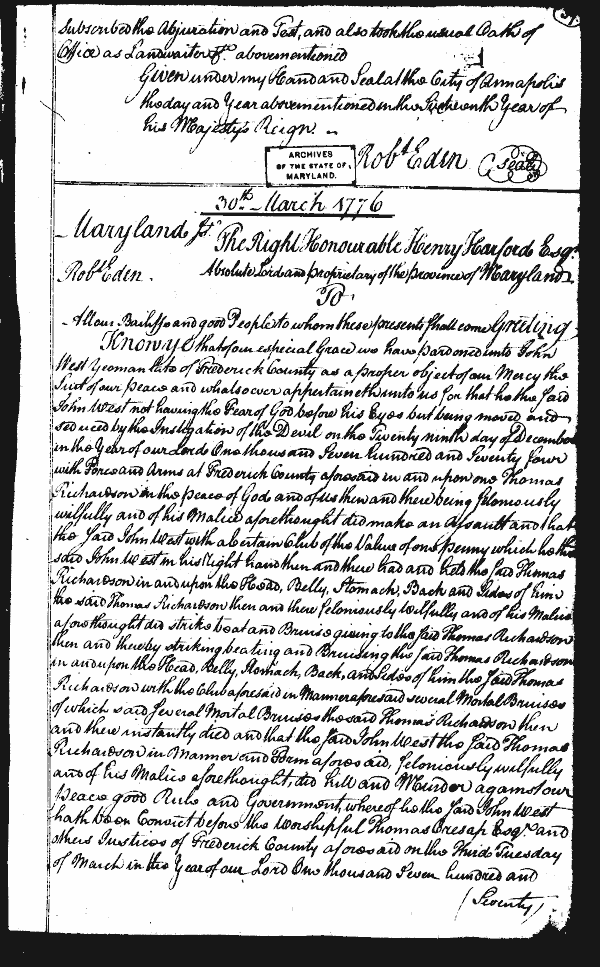 Subscribed the Abjuration and Test, and also took the usual Oath of
Office as Landwaiter &c. abovementioned
Given under my Hand and Seal at the City of Annapolis
the day and Year abovementioned in the Sixteenth Year of
his Majesty's Reign.
Robt Eden (Seal)
ARCHIVES
OF THE STATE OF
MARYLAND.
30th March 1776
Maryland Ss. The Right Honourable Henry Harford Esqr
Robt Eden. Absolute Lord and proprietary of the province of Maryland
To
All our Bailiffs and good People to whom these presents shall come Greeting
Know ye that of our especial Grace we have pardoned unto John
West Yeoman late of Frederick County as a proper object of our Mercy the
Suit of our peace and whatsoever appertaineth unto us for that he the said
John West not having the Fear of God before his Eyes but being moved and
seduced by the Instigation of the Devil on the Twenty ninth day of December
in the Year of our Lord One thousand Seven hundred and Seventy four
with Force and Arms at Frederick County aforesaid in and upon one Thomas
Richardson in the peace of God and of us then and there being feloniously
wilfully and of his Malice aforethought did make an Assault and that
the said John West with a Certain Club of the Value of one penny which he the
said John West in his Right hand then and there had and held the said Thomas
Richardson in and upon the Head, Belly, Stomach, Back and Sides of him
the said Thomas Richardson then and there feloniously Wilfully and of his Malice
aforethought did strike beat and Bruise giving to the said Thomas Richardson
then and thereby striking beating and Bruising the said Thomas Richardson
in and upon the Head, Belly, Stomach, Back, and Sides of him the said Thomas
Richardson with the Club aforesaid in Manner aforesaid several Mortal Bruises
of which said several Mortal Bruises the said Thomas Richardson then
and there instantly died and that the said John West the said Thomas
Richardson in Manner and Form aforesaid, feloniously wilfully
and of his Malice aforethought, did kill and Murder against our
Peace good Rule and Government, whereof he the said John West
hath been Convict before the Worshipful Thomas Cresap Esqr. and
others Justices of Frederick County aforesaid on the Third Tuesday
of March in the Year of our Lord One thousand Seven hundred and
(Seventy)